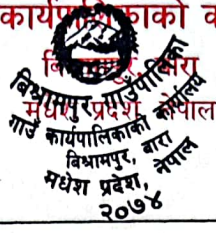 कार्यपालिकाको
बिश्रामपुर, बारा
मधेश प्रदेश, नेपाल
बिश्रामपुर गाउँपालिका
गाउँ कार्यपालिकाको कार्यालय
बिश्रामपुर, बारा
मधेश प्रदेश, नेपाल
२०७४